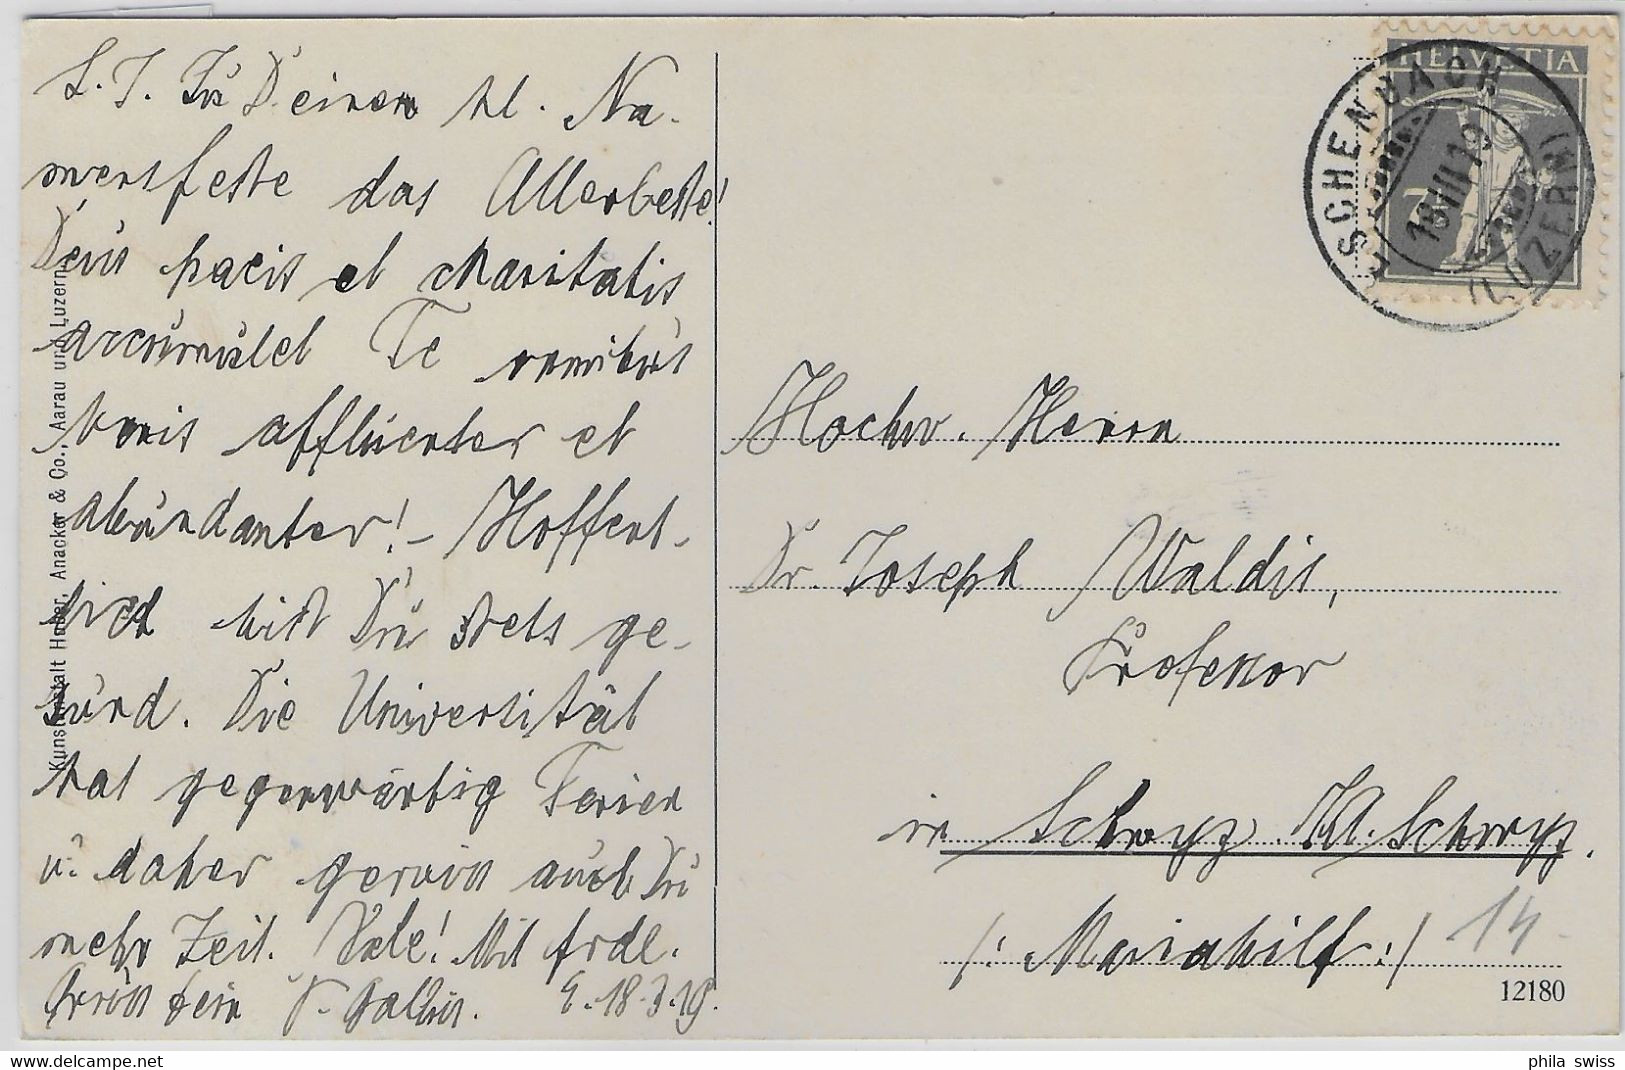 L. J. Zu Deinem hl. Na-
mensfeste das Allerbeste!
Deus pacis et charitatis
accumulet Te omnibus
bonis affluenter et
abundanter! – Hoffent-
lich bist Du stets ge-
sund. Die Universität
hat gegenwärtig Ferien
u. daher gewiss auch Du
mehr Zeit. Vale! Mit frdl.
Gruss Dein P. Gallus. E. 18.3.19.
Kunstanstalt Huber, Anacker & Co., Aarau und Luzern
HELVETIA
ESCHENBACH
18.III.19
(LUZERN)
Hochw. Herrn
Dr. Joseph Waldis,
Professor
in Schwyz. Kt. Schwyz.
/: Mariahilf :/
14
12180
www.delcampe.net
phila_swiss